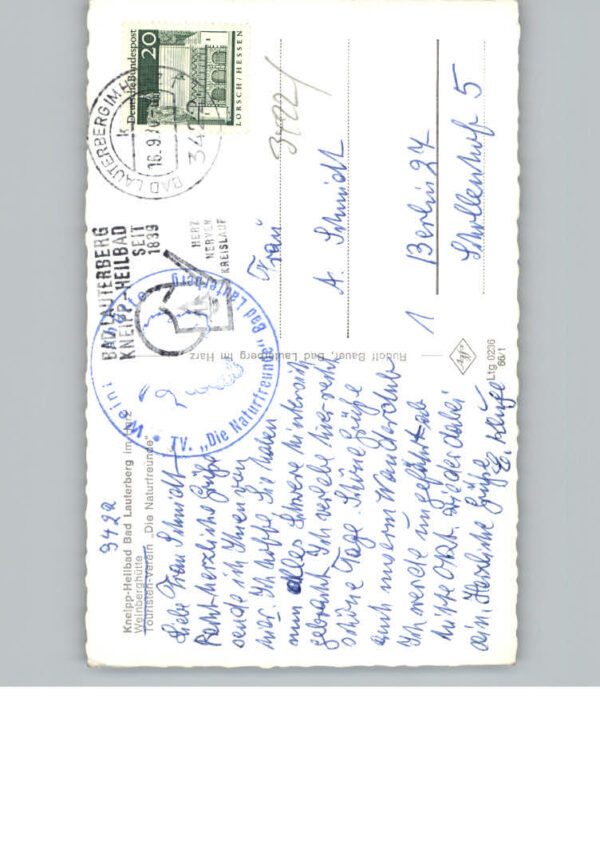 3422
Kneipp-Heilbad Bad Lauterberg im Harz
Weinberghütte
Touristen-Verein „Die Naturfreunde"
Liebe Frau Schmidt
Recht herzliche Grüße
sende ich Ihnen von
hier. Ich hoffe Sie haben
nun alles Schwere hinter sich
gebracht. Ich verlebe hier recht
schöne Tage. Schöne Grüße
auch unserm Wanderclub
Ich werde ungefähr ab
mitte Okt. wieder dabei
sein. Herzliche Grüße
E.
TV. „Die Naturfreunde" Bad Lauterberg
BAD LAUTERBERG
KNEIPP-HEILBAD
SEIT
1839
HERZ
NERVEN
KREISLAUF
BAD LAUTERBERG IM
16.9
Deutsche Bundespost
20
LORSCH/HESSEN
Rudolf Bauer, Bad Lauterberg im Harz
3422/
Frau
A. Schmidt
1 Berlin 27
5
Agfa
Ltg 0236
66/1